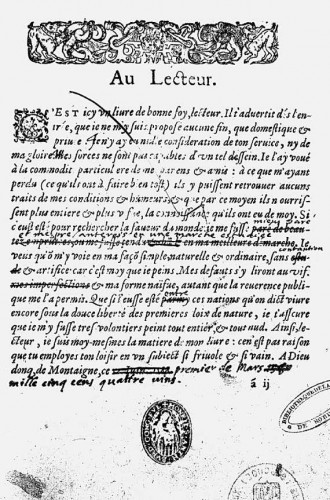 Au Lecteur.
C'EST icy vn liure de bonne foy, lecteur. Il t'aduertit dés l'en-
trée, que ie ne m'y suis proposé aucune fin, que domestique &
priuée. Ie n'y ay eu nulle consideration de ton seruice, ny de
ma gloire. Mes forces ne sont pas capables d'vn tel dessein. Ie l'ay voué
à la commodité particuliere de mes parens & amis: à ce que m'ayant
perdu (ce qu'ils ont à faire bien tost) ils y puissent retrouuer aucuns
traits de mes conditions & humeurs, & que par ce moyen ils nourris-
sent plus entiere & plus vifue, la connoissance qu'ils ont eu de moy. Si
mieus paré
c'eust esté pour rechercher la faueur du monde, ie me fusse paré de beau-
tez empruntées, ou me fusse en ma meilleure démarche. Ie
contantion
veus qu'on m'y voie en ma façõ simple, naturelle & ordinaire, sans
& artifice: car c'est moy que ie peins. Mes defauts s'y liront au vif.
mes imperfections & ma forme naïfue, autant que la reuerence publi-
que me l'a permis. Que si i'eusse esté parmy ces nations qu'on dict viure
entre
encore sous la douce liberté des premieres loix de nature, ie t'asseure
que ie m'y fusse tres volontiers peint tout entier, & tout nud. Ainsi, le-
cteur, ie suis moy-mesmes la matiere de mon liure: ce n'est pas raison
que tu employes ton loisir en vn subiect si friuole & si vain. A Dieu
donq, de Montaigne, ce premier de Mars
mille cinq cens quattre vins.
ã ij